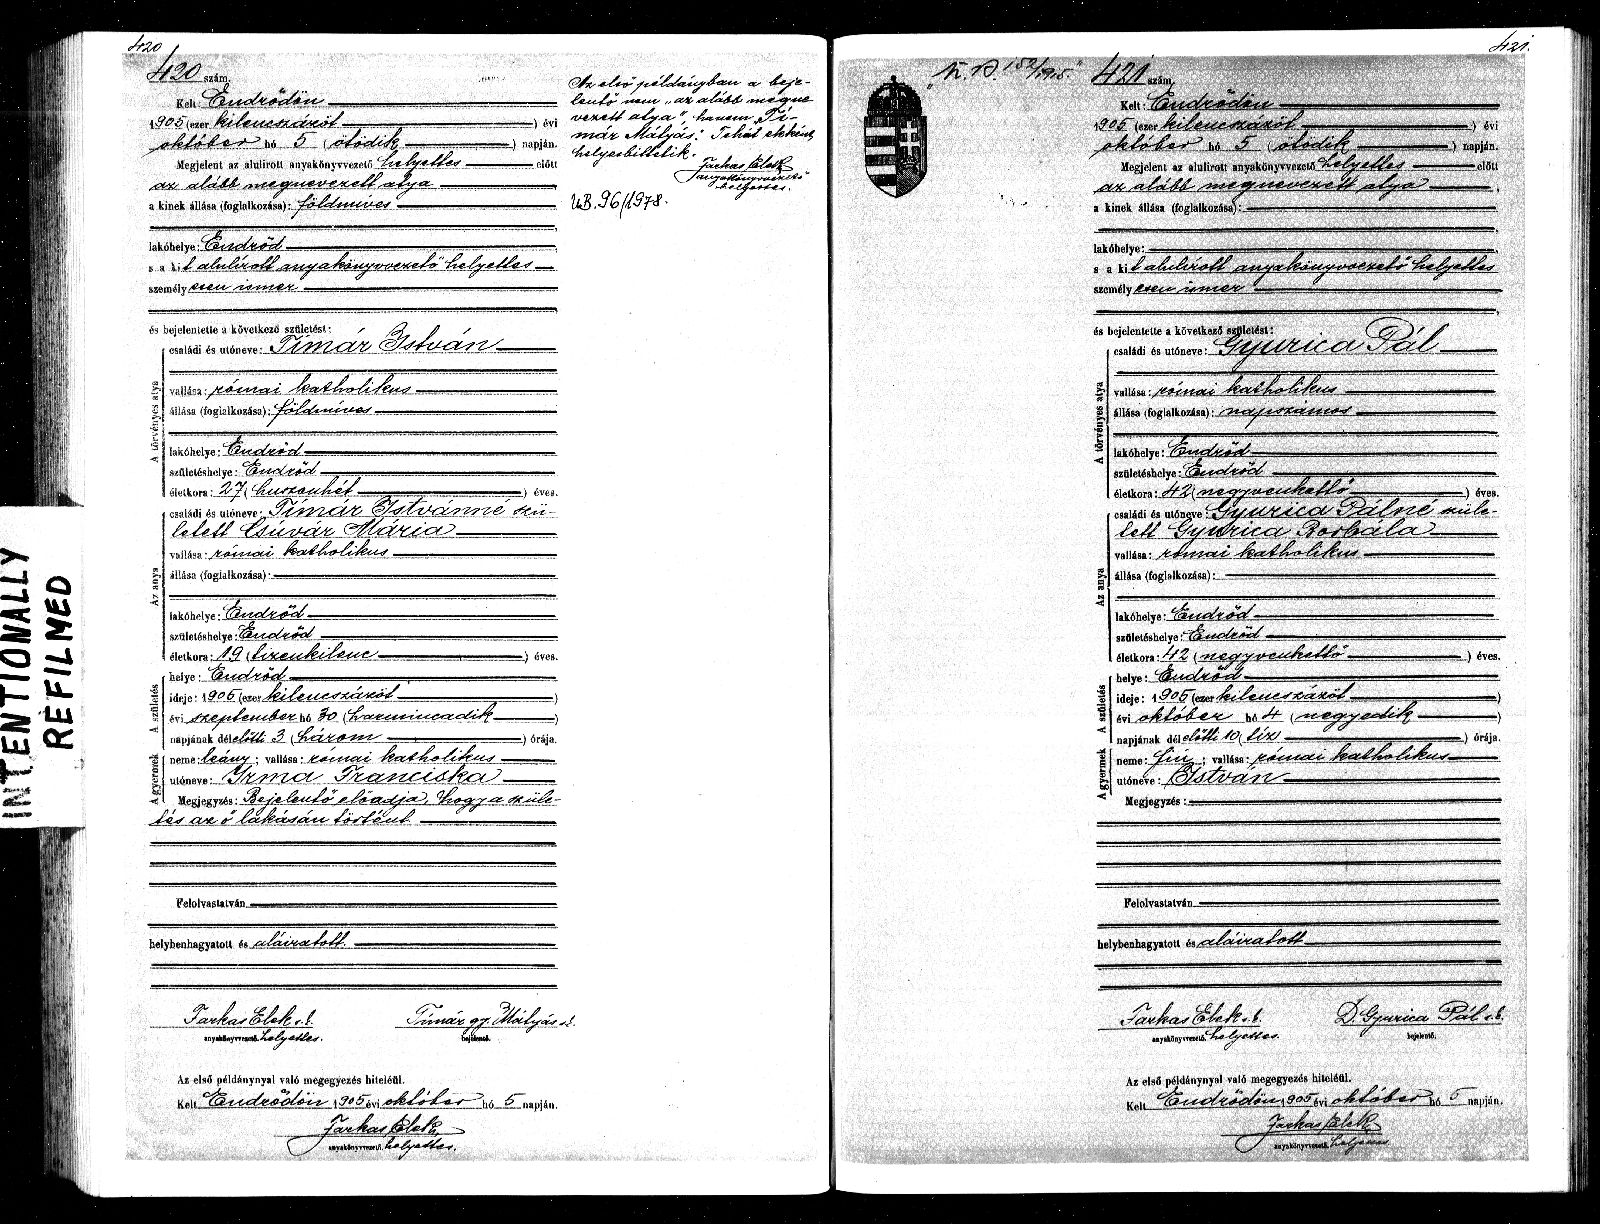 420
420 szám.
Kelt: Endrődön
1905 (ezer kilencszázöt ) évi
október hó 5 (ötödik ) napján.
Megjelent az alulirott anyakönyvvezető helyettes előtt
az alább megnevezett atya
a kinek állása (foglalkozása): földmíves
lakóhelye: Endrőd
s a kit alulírott anyakönyvvezető helyettes
személyesen ismer
és bejelentette a következő születést:
A törvényes atya
családi és utóneve: Tímár István
vallása: római katholikus
állása (foglalkozása): földmíves
lakóhelye: Endrőd
születéshelye: Endrőd
életkora: 27 (huszonhét ) éves.
Az anya
családi és utóneve: Tímár Istvánné szü-
letett Csúvár Mária
vallása: római katholikus
állása (foglalkozása):
lakóhelye: Endrőd
születéshelye: Endrőd
életkora: 19 (tizenkilenc ) éves.
A születés
helye: Endrőd
ideje: 1905 (ezer kilencszázöt )
évi szeptember hó 30 (harmincadik )
napjának délelőtti 3 (három ) órája.
A gyermek
neme: leány; vallása: római katholikus
utóneve: Irma Franciska
Megjegyzés: Bejelentő előadja, hogy a szüle-
tés az ő lakásán történt.
Felolvastatván
helybenhagyatott és aláiratott.
Farkas Elek s.k. Tímár gy. Mátyás s.k.
anyakönyvvezető. helyettes. bejelentő.
Az első példánynyal való megegyezés hiteléül.
Kelt Endrődön 1905 évi október hó 5 napján.
Farkas Elek
anyakönyvvezető. helyettes.
Az első példányban a beje-
lentő nem "az alább megne-
vezett atya", hanem Tí-
már Mátyás. Tehát ekként
helyesbíttetik.
Farkas Elek
anyakönyvvezető
helyettes.
U.B. 96/1978.
INTENTIONALLY
REFILMED
421.
421 szám.
Kelt: Endrődön
1905 (ezer kilencszázöt ) évi
október hó 5 (ötödik ) napján.
Megjelent az alulirott anyakönyvvezető helyettes előtt
az alább megnevezett atya
a kinek állása (foglalkozása):
lakóhelye:
s a kit alulírott anyakönyvvezető helyettes
személyesen ismer
és bejelentette a következő születést:
A törvényes atya
családi és utóneve: Gyurica Pál
vallása: római katholikus
állása (foglalkozása): napszámos
lakóhelye: Endrőd
születéshelye: Endrőd
életkora: 42 (negyvenkettő ) éves.
Az anya
családi és utóneve: Gyurica Pálné szüle-
tett Gyurica Borbála
vallása: római katholikus
állása (foglalkozása):
lakóhelye: Endrőd
születéshelye: Endrőd
életkora: 42 (negyvenkettő ) éves.
A születés
helye: Endrőd
ideje: 1905 (ezer kilencszázöt )
évi október hó 4 (negyedik )
napjának délelőtti 10 (tíz ) órája.
A gyermek
neme: fiú; vallása: római katholikus
utóneve: István
Megjegyzés:
Felolvastatván
helybenhagyatott és aláiratott
Farkas Elek s.k. D. Gyurica Pál s.k.
anyakönyvvezető. helyettes. bejelentő.
Az első példánynyal való megegyezés hiteléül.
Kelt Endrődön 1905 évi október hó 5 napján.
Farkas Elek
anyakönyvvezető. helyettes